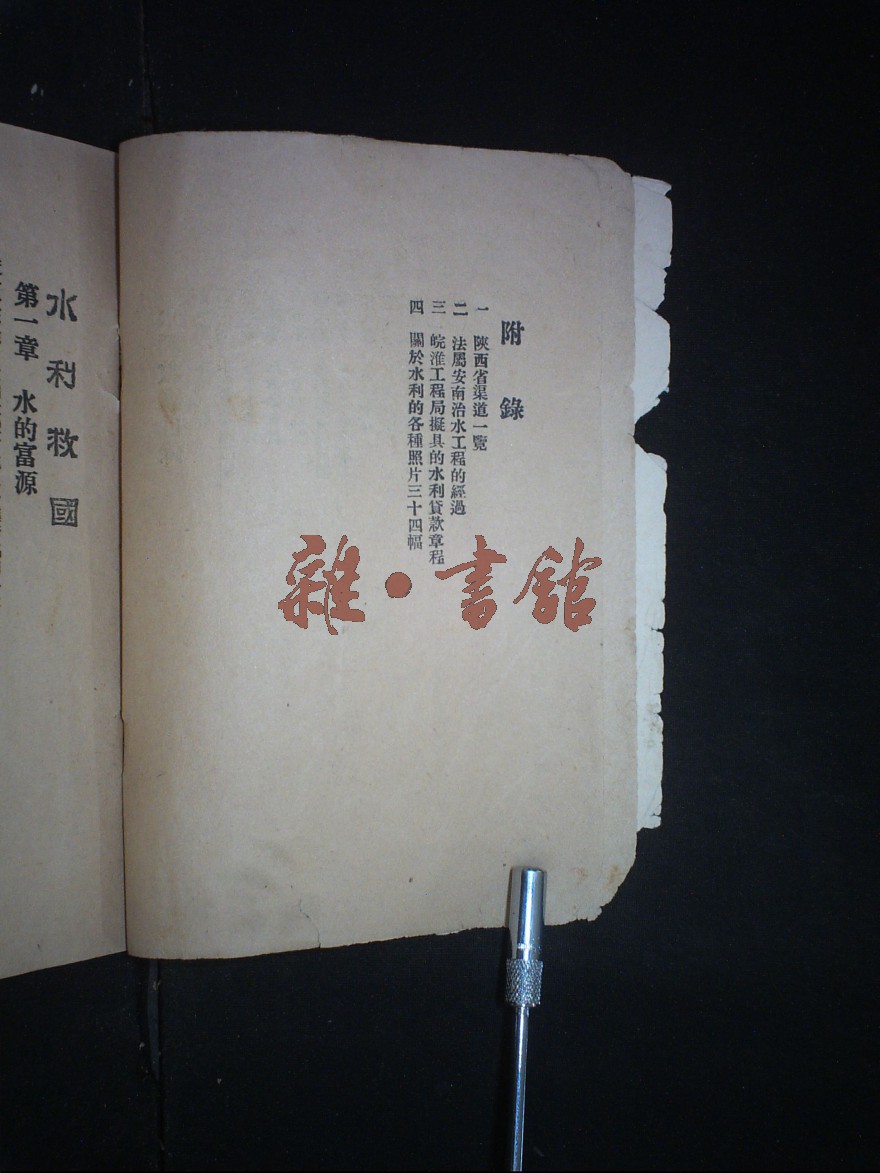 附錄
一 陝西省渠道一覽
二 法屬安南治水工程的經過
三 皖淮工程局擬具的水利貸款章程
四 關於水利的各種照片三十四幅
水利救國
第一章 水的富源
雜•書館